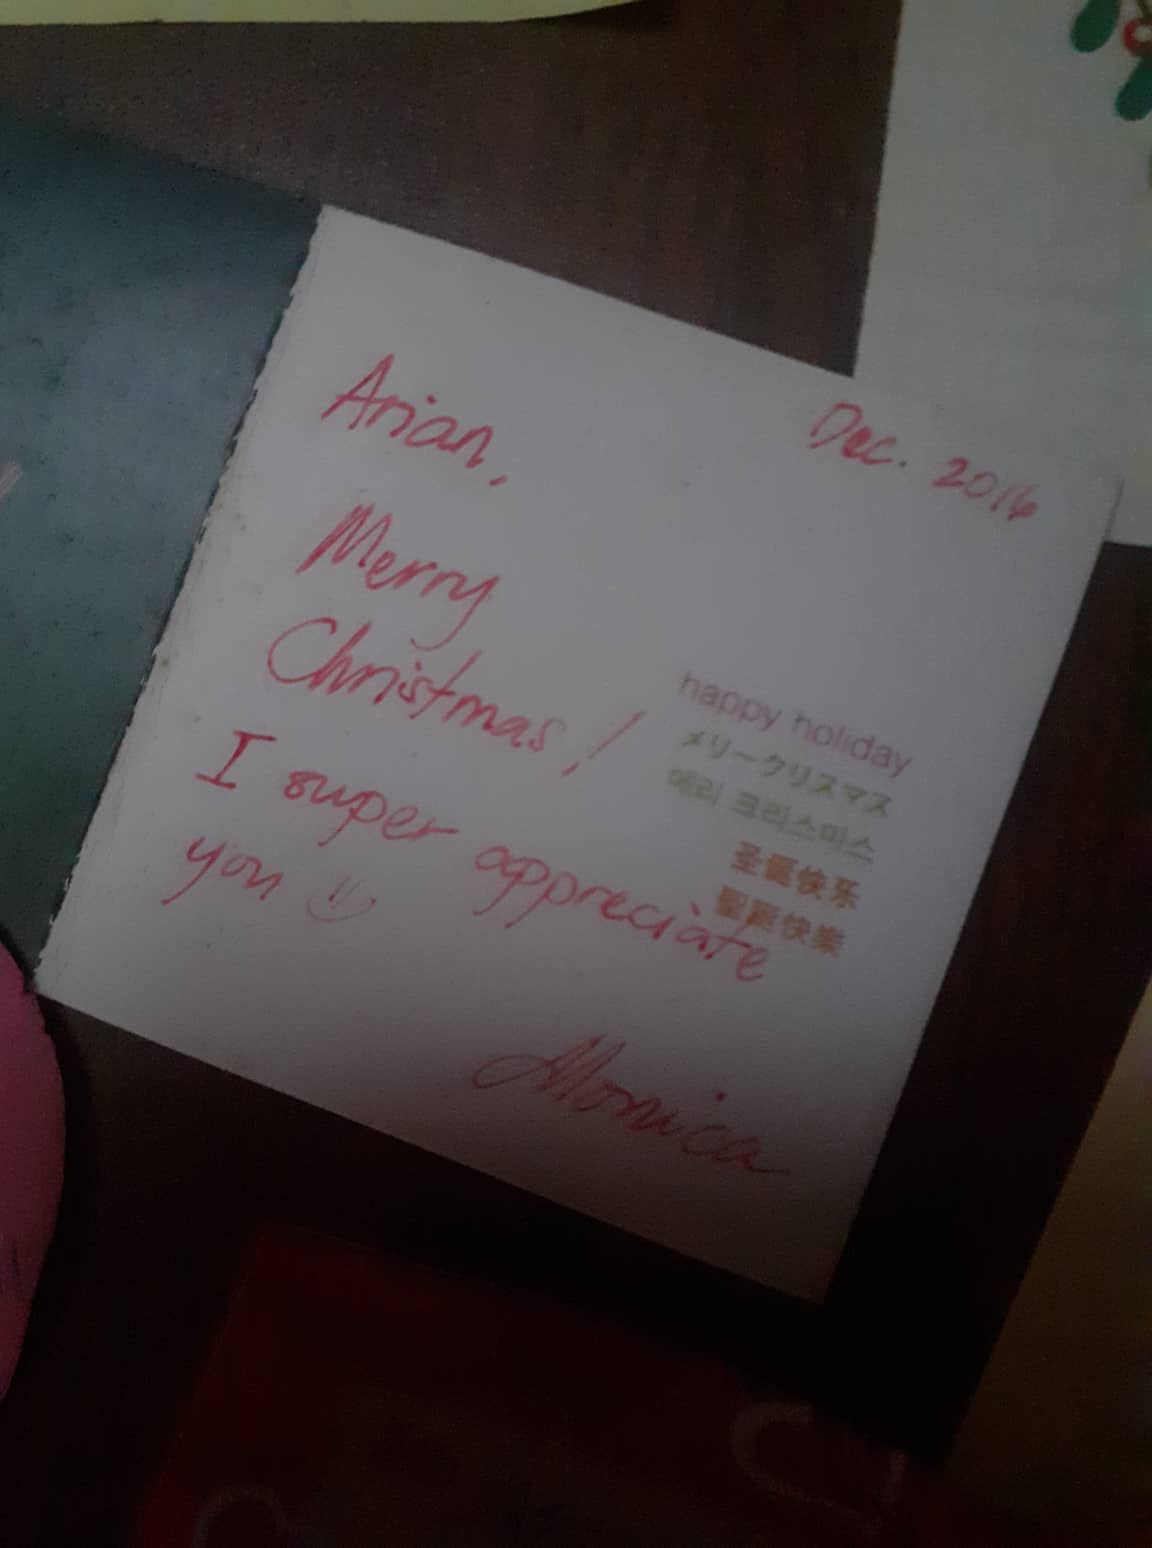 Dec. 2016
Arian,
Merry
Christmas!
I super appreciate
you
Monica
happy holiday
メリークリスマス
메리 크리스마스
圣诞快乐
聖誕快樂